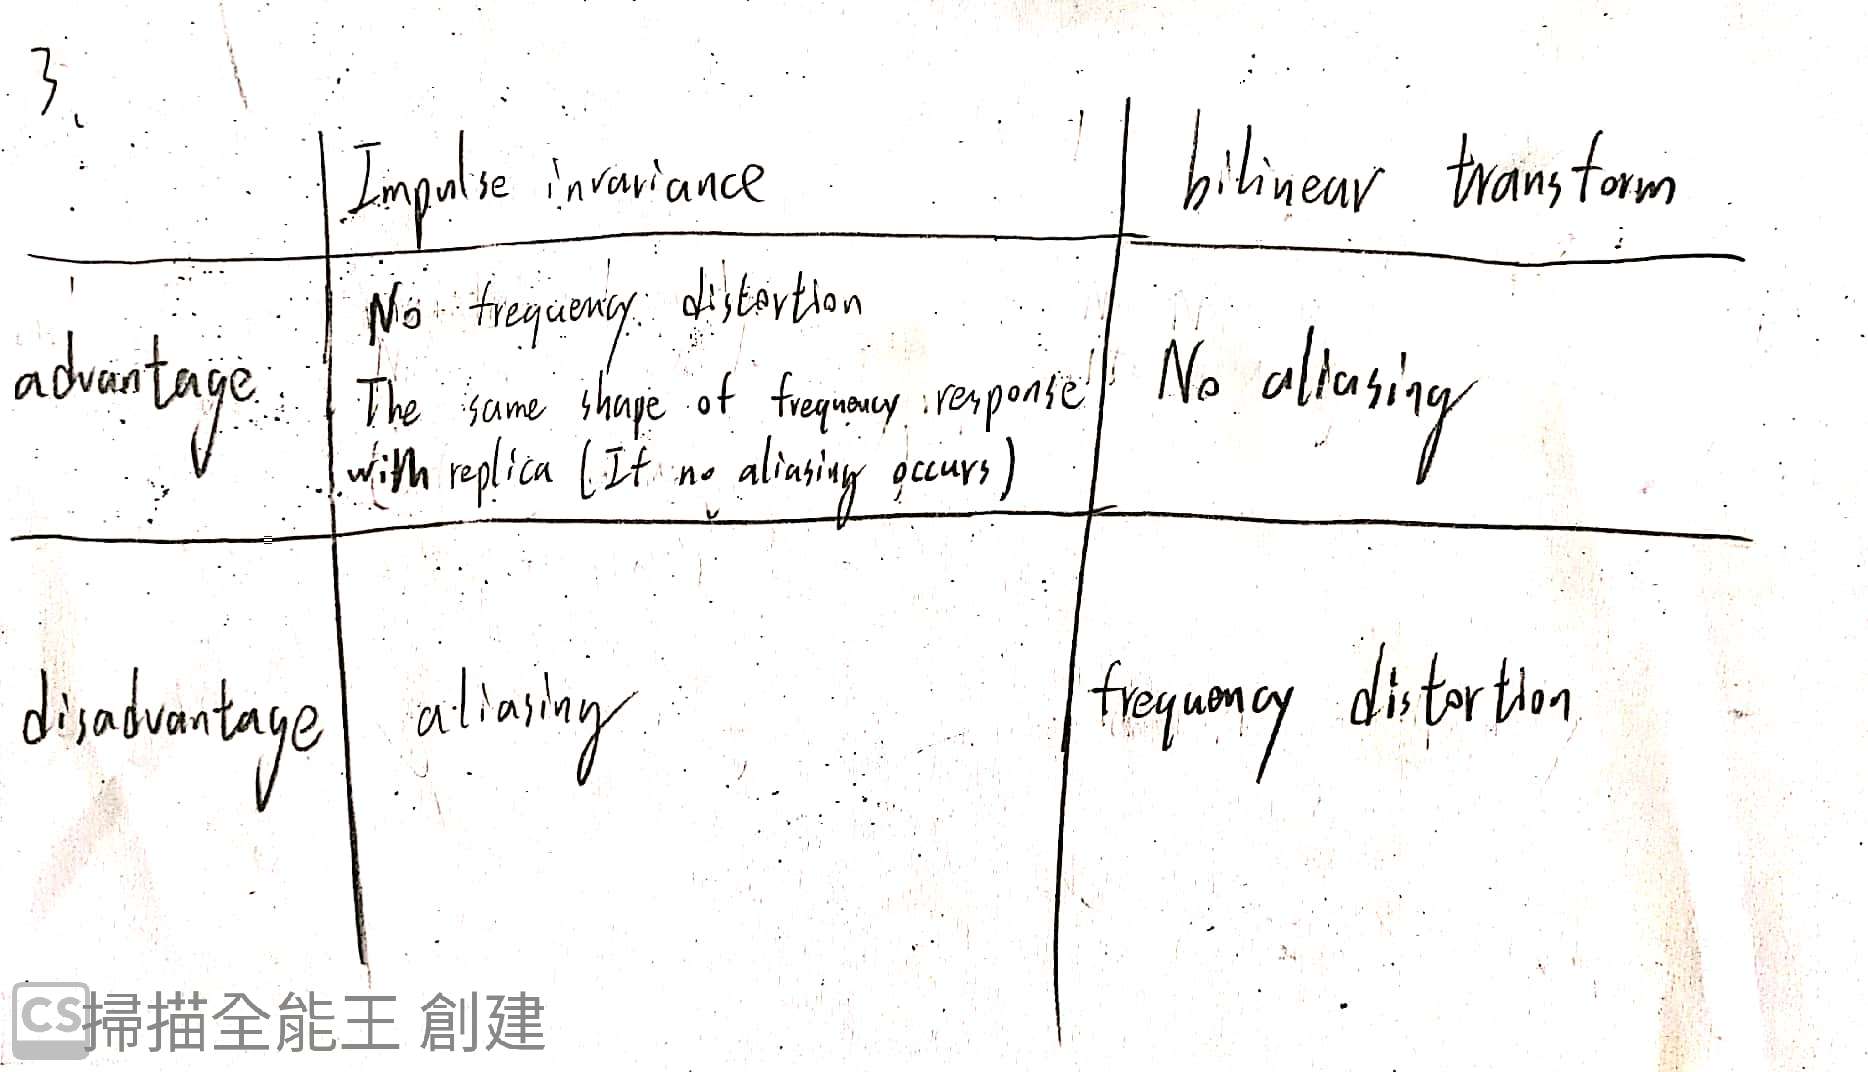 3.
Impulse invariance
bilinear transform
advantage
No frequency distortion
The same shape of frequency response
with replica (If no aliasing occurs)
No aliasing
disadvantage
aliasing
frequency distortion
CS掃描全能王 創建